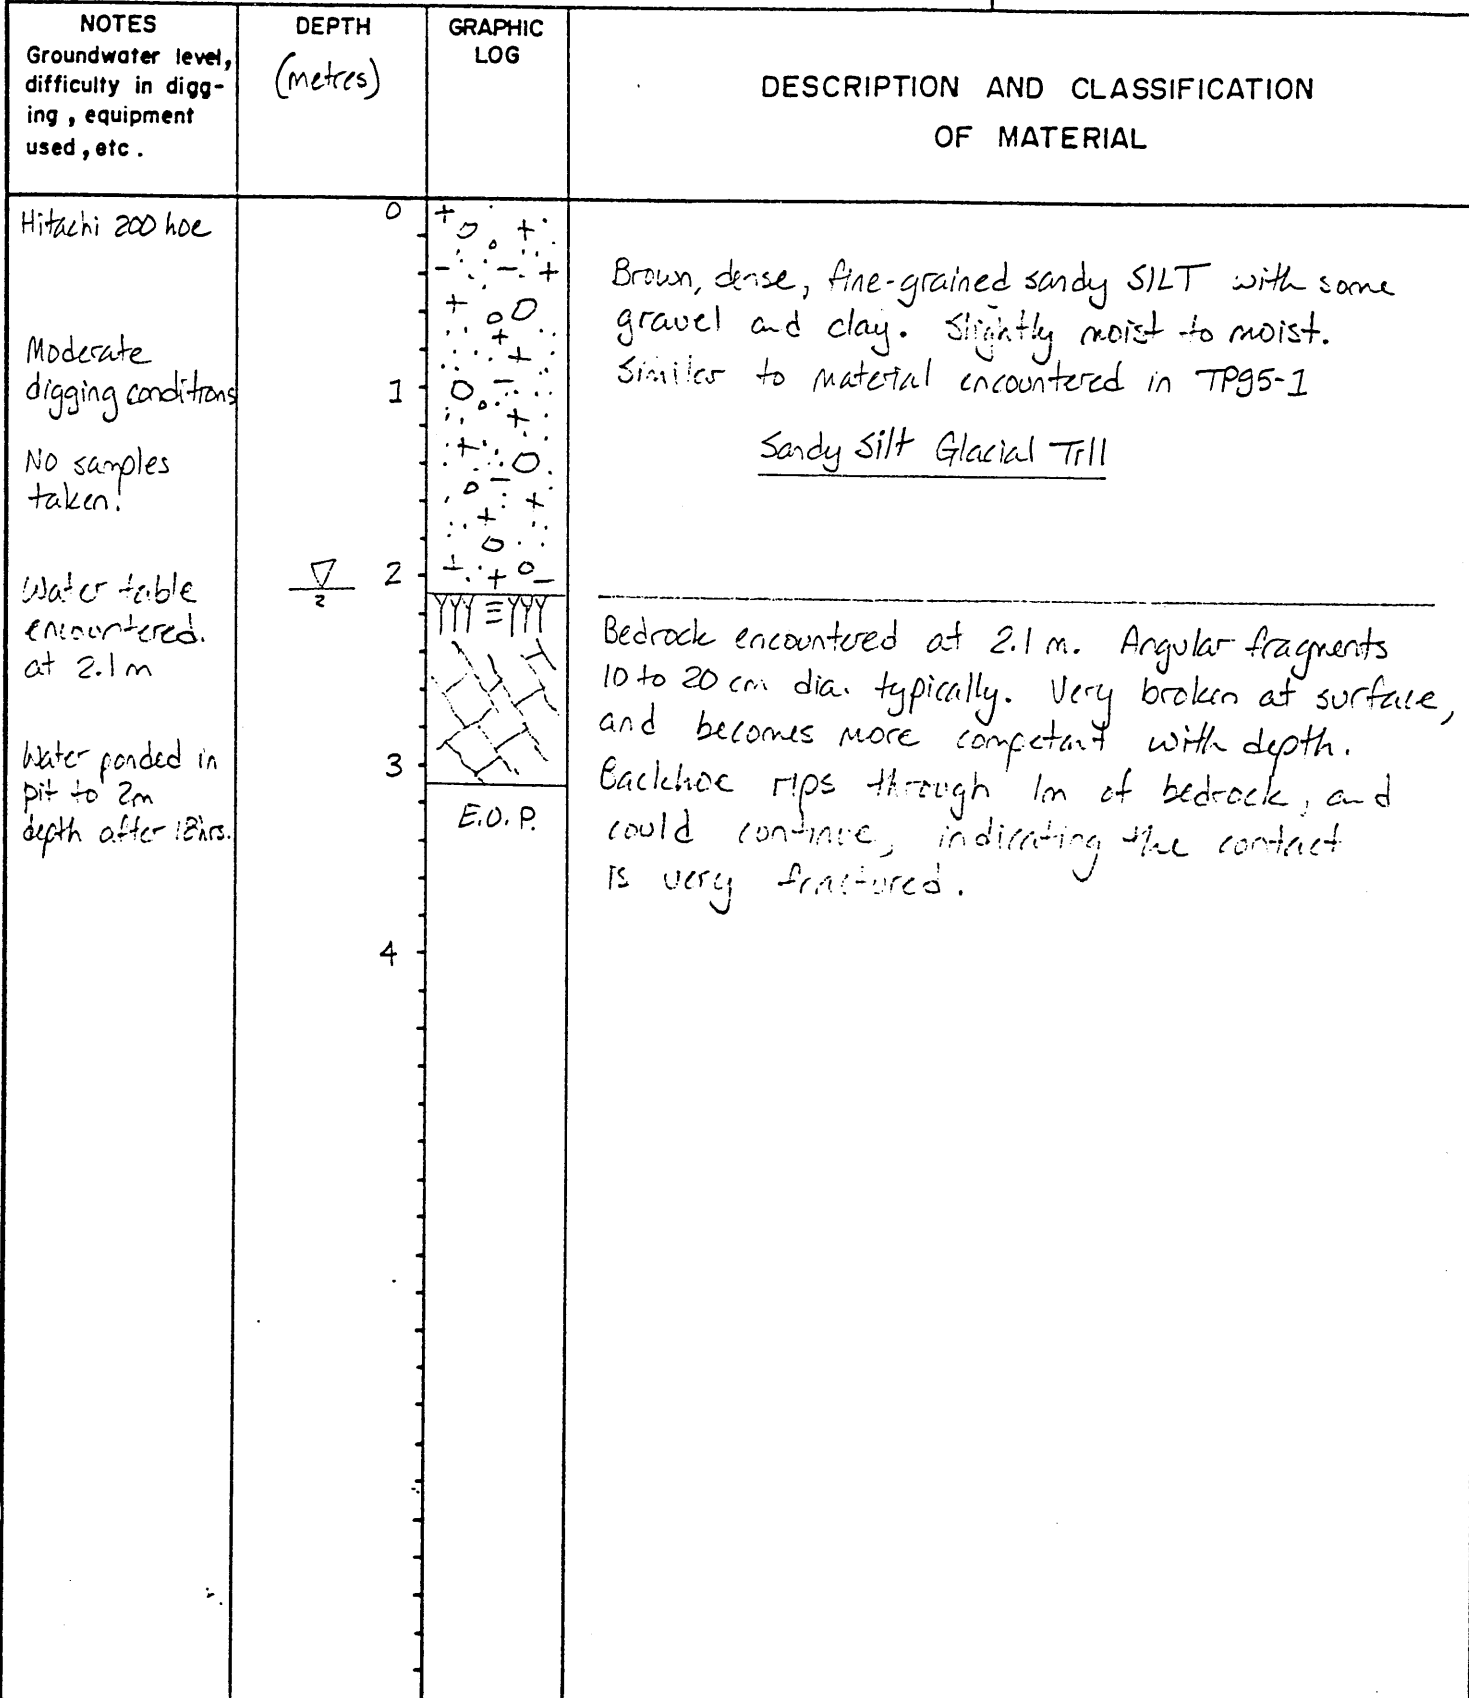 NOTES
Groundwater level,
difficulty in digg-
ing, equipment
used, etc.
DEPTH
(metres)
GRAPHIC
LOG
DESCRIPTION AND CLASSIFICATION
OF MATERIAL
Hitachi 200 hoe
Moderate
digging conditions
No samples
taken.
Water table
encountered.
at 2.1 m
Water ponded in
pit to 2m
depth after 18hrs.
0
1
2
2
3
4
E.O.P.
Brown, dense, fine-grained sandy SILT with some
gravel and clay. Slightly moist to moist.
Similar to material encountered in TP95-1
Sandy Silt Glacial Till
Bedrock encountered at 2.1 m. Angular fragments
10 to 20 cm dia. typically. Very broken at surface,
and becomes more competant with depth.
Backhoe rips through 1m of bedrock, and
could continue, indicating the contact
is very fractured.